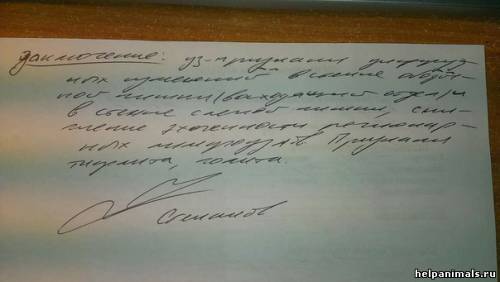 Заключение: уз-признаки диффуз-
ных изменений в стенке ободоч-
ной кишки (восходящий отдел) и
в стенке слепой кишки, сни-
жение эхогенности регионар-
ных лимфоузлов. Признаки
тифлита, колита.
Степанов
helpanimals.ru